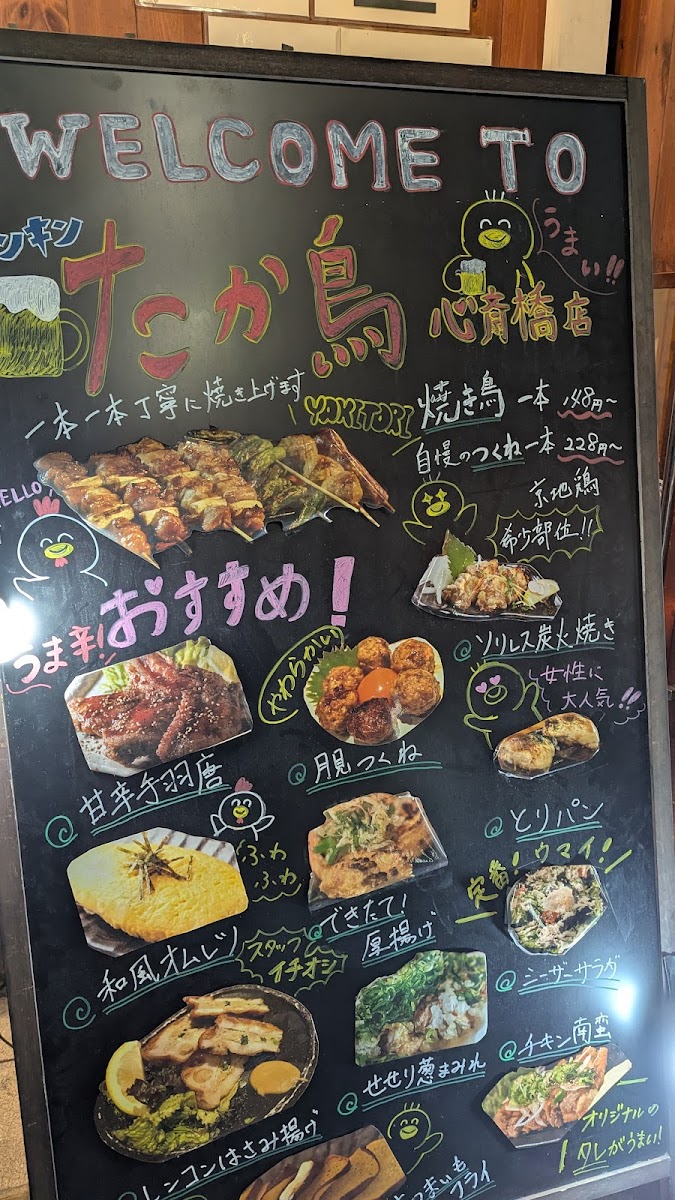 WELCOME TO
ンキン
たか鳥
うまい!!
心斎橋店
一本一本丁寧に焼き上げます
YAKITORI
焼き鳥 一本 148円〜
自慢のつくね一本 228円〜
HELLO
京地鶏
希少部位!!
おすすめ!
ソリレス炭火焼き
うま辛!
やわらかい
女性に
大人気!!
甘辛手羽唐
月見つくね
とりパン
ふわ
ふわ
定番!ウマイ!
和風オムレツ
できたて!
厚揚げ
スタッフ
イチオシ
シーザーサラダ
せせり葱まみれ
チキン南蛮
オリジナルの
タレがうまい!
レンコンはさみ揚げ
さつまいも
フライ